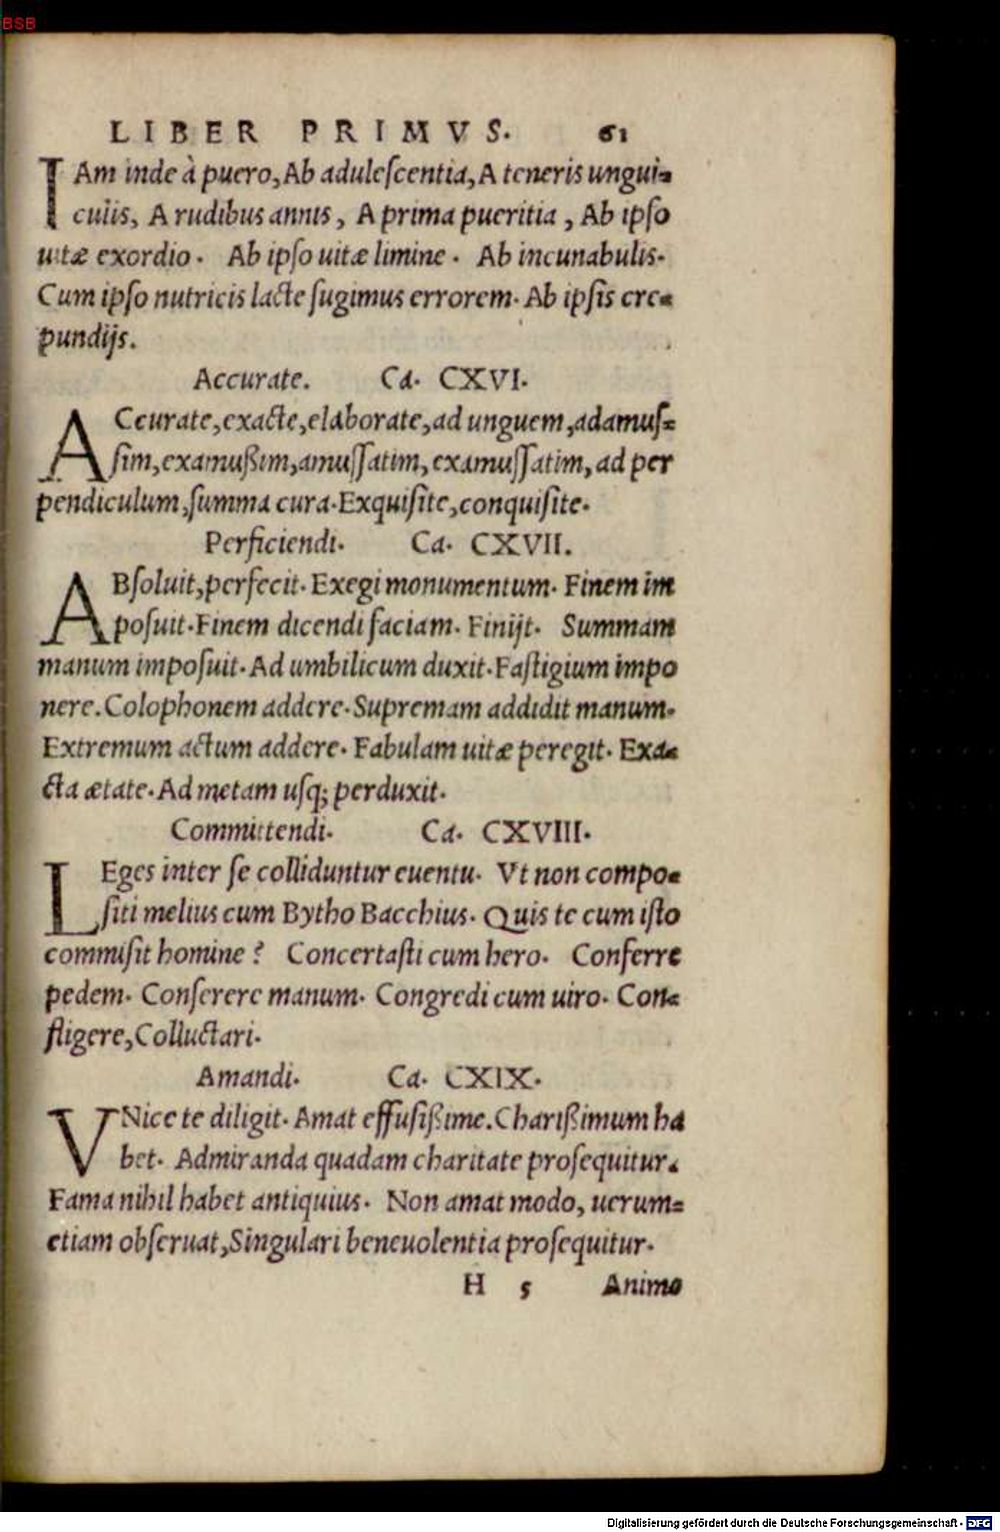 BSB
LIBER PRIMVS. 61
IAm inde à puero, Ab adulescentia, A teneris ungui-
culis, A rudibus annis, A prima pueritia, Ab ipso
uitæ exordio. Ab ipso uitæ limine. Ab incunabulis.
Cum ipso nutricis lacte sugimus errorem. Ab ipsis cre-
pundijs.
Accurate. Ca. CXVI.
ACcurate, exacte, elaborate, ad unguem, adamus-
sim, examußim, amussatim, examussatim, ad per
pendiculum, summa cura. Exquisite, conquisite.
Perficiendi. Ca. CXVII.
ABsoluit, perfecit. Exegi monumentum. Finem im
posuit. Finem dicendi faciam. Finijt. Summam
manum imposuit. Ad umbilicum duxit. Fastigium impo
nere. Colophonem addere. Supremam addidit manum.
Extremum actum addere. Fabulam uitæ peregit. Exa-
cta ætate. Ad metam usq; perduxit.
Committendi. Ca. CXVIII.
LEges inter se colliduntur euentu. Vt non compo-
siti melius cum Bytho Bacchius. Quis te cum isto
commisit homine? Concertasti cum hero. Conferre
pedem. Conserere manum. Congredi cum uiro. Con-
fligere, Colluctari.
Amandi. Ca. CXIX.
VNice te diligit. Amat effusißime. Charißimum ha
bet. Admiranda quadam charitate prosequitur.
Fama nihil habet antiquius. Non amat modo, uerum-
etiam obseruat, Singulari beneuolentia prosequitur.
H 5 Animo
Digitalisierung gefördert durch die Deutsche Forschungsgemeinschaft - DFG